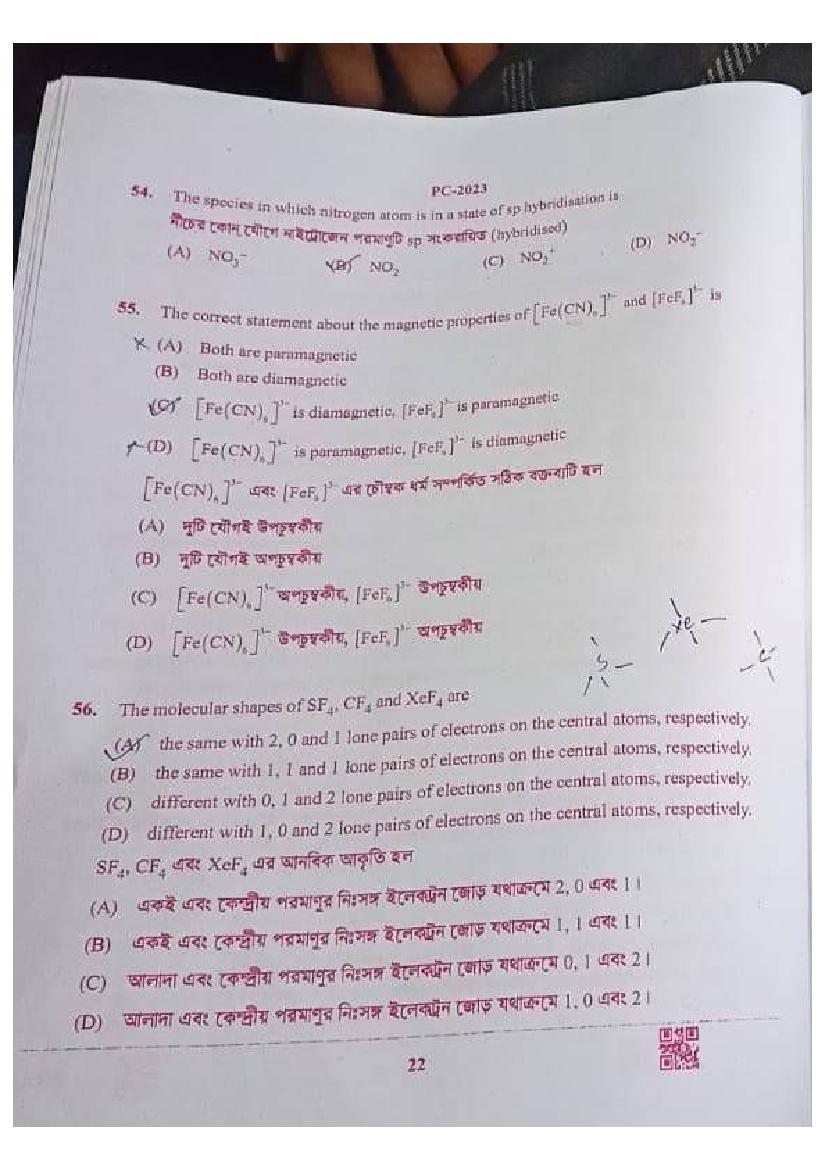 PC-2023
54. The species in which nitrogen atom is in a state of sp hybridisation is
নীচের কোন্ যৌগে নাইট্রোজেন পরমাণুটি sp সংকরায়িত (hybridised)
(A) NO₃⁻ (B) NO₂ (C) NO₂⁺ (D) NO₂⁻
55. The correct statement about the magnetic properties of [Fe(CN)₆]³⁻ and [FeF₆]³⁻ is
(A) Both are paramagnetic
(B) Both are diamagnetic
(C) [Fe(CN)₆]³⁻ is diamagnetic, [FeF₆]³⁻ is paramagnetic
(D) [Fe(CN)₆]³⁻ is paramagnetic, [FeF₆]³⁻ is diamagnetic
[Fe(CN)₆]³⁻ এবং [FeF₆]³⁻ এর চৌম্বক ধর্ম সম্পর্কিত সঠিক বক্তব্যটি হল
(A) দুটি যৌগই উপচুম্বকীয়
(B) দুটি যৌগই অপচুম্বকীয়
(C) [Fe(CN)₆]³⁻ অপচুম্বকীয়, [FeF₆]³⁻ উপচুম্বকীয়
(D) [Fe(CN)₆]³⁻ উপচুম্বকীয়, [FeF₆]³⁻ অপচুম্বকীয়
Xe
S
C
56. The molecular shapes of SF₄, CF₄ and XeF₄ are
(A) the same with 2, 0 and 1 lone pairs of electrons on the central atoms, respectively.
(B) the same with 1, 1 and 1 lone pairs of electrons on the central atoms, respectively.
(C) different with 0, 1 and 2 lone pairs of electrons on the central atoms, respectively.
(D) different with 1, 0 and 2 lone pairs of electrons on the central atoms, respectively.
SF₄, CF₄ এবং XeF₄ এর আনবিক আকৃতি হল
(A) একই এবং কেন্দ্রীয় পরমাণুর নিঃসঙ্গ ইলেকট্রন জোড় যথাক্রমে 2, 0 এবং 1।
(B) একই এবং কেন্দ্রীয় পরমাণুর নিঃসঙ্গ ইলেকট্রন জোড় যথাক্রমে 1, 1 এবং 1।
(C) আলাদা এবং কেন্দ্রীয় পরমাণুর নিঃসঙ্গ ইলেকট্রন জোড় যথাক্রমে 0, 1 এবং 2।
(D) আলাদা এবং কেন্দ্রীয় পরমাণুর নিঃসঙ্গ ইলেকট্রন জোড় যথাক্রমে 1, 0 এবং 2।
22